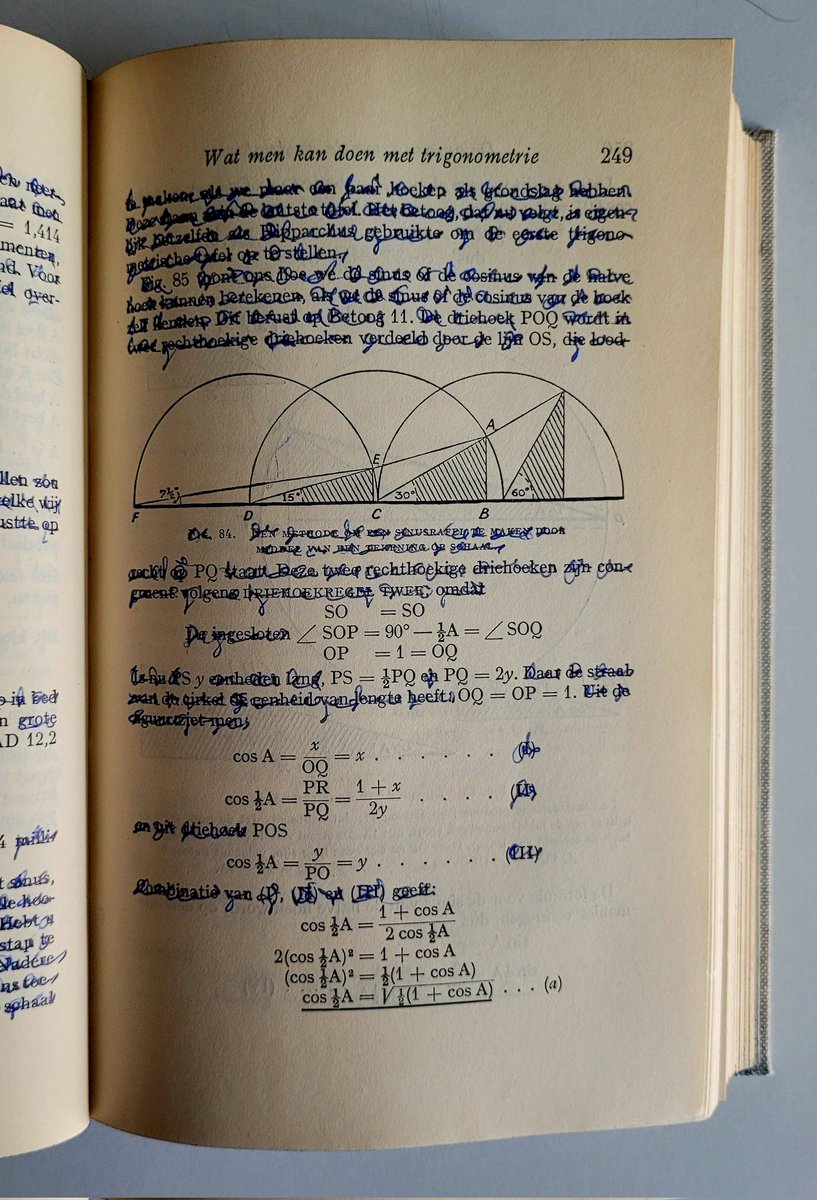 en meer,
aat men
= 1,414
menten,
nd. Voor
iel over-
llen zou
welke wij
ustte, op
o in bed
n grote
AD 12,2
4 milli-
t sinus,
de hoe-
Hebt u
stap te
Nadere
ns toe-
schaal
Wat men kan doen met trigonometrie 249
te maken, als we maar een paar hoeken als grondslag hebben.
de laatste tafel. Het betoog, dat nu volgt, is eigen-
lijk hetzelfde als Hipparchus gebruikte om de eerste trigono-
metrische tafel op te stellen.
Fig. 85 toont ons hoe we de sinus of de cosinus van de halve
hoek kunnen berekenen, als we de sinus of de cosinus van de hoek
zelf kennen. Dit berust op Betoog 11. De driehoek POQ wordt in
twee rechthoekige driehoeken verdeeld door de lijn OS, die lood-
F 7½° D 15° E C 30° A B 60°
FIG. 84. EEN METHODE OM EEN SINUSTAFEL TE MAKEN DOOR
MIDDEL VAN EEN TEKENING OP SCHAAL.
recht op PQ staat. Deze twee rechthoekige driehoeken zijn con-
gruent volgens DRIEHOEKREGEL TWEE, omdat
SO = SO
De ingesloten ∠ SOP = 90° — ½A = ∠ SOQ
OP = 1 = OQ
Is nu PS y eenheden lang, PS = ½PQ en PQ = 2y. Daar de straal
van de cirkel de eenheid van lengte heeft, OQ = OP = 1. Uit de
figuur ziet men,
cos A = x/OQ = x . . . . . . (I)
cos ½A = PR/PQ = (1 + x)/2y . . . . (II)
en uit driehoek POS
cos ½A = y/PO = y . . . . . . (III)
Combinatie van (I), (II) en (III) geeft:
cos ½A = (1 + cos A)/(2 cos ½A)
2(cos ½A)² = 1 + cos A
(cos ½A)² = ½(1 + cos A)
cos ½A = √½(1 + cos A) . . . (a)